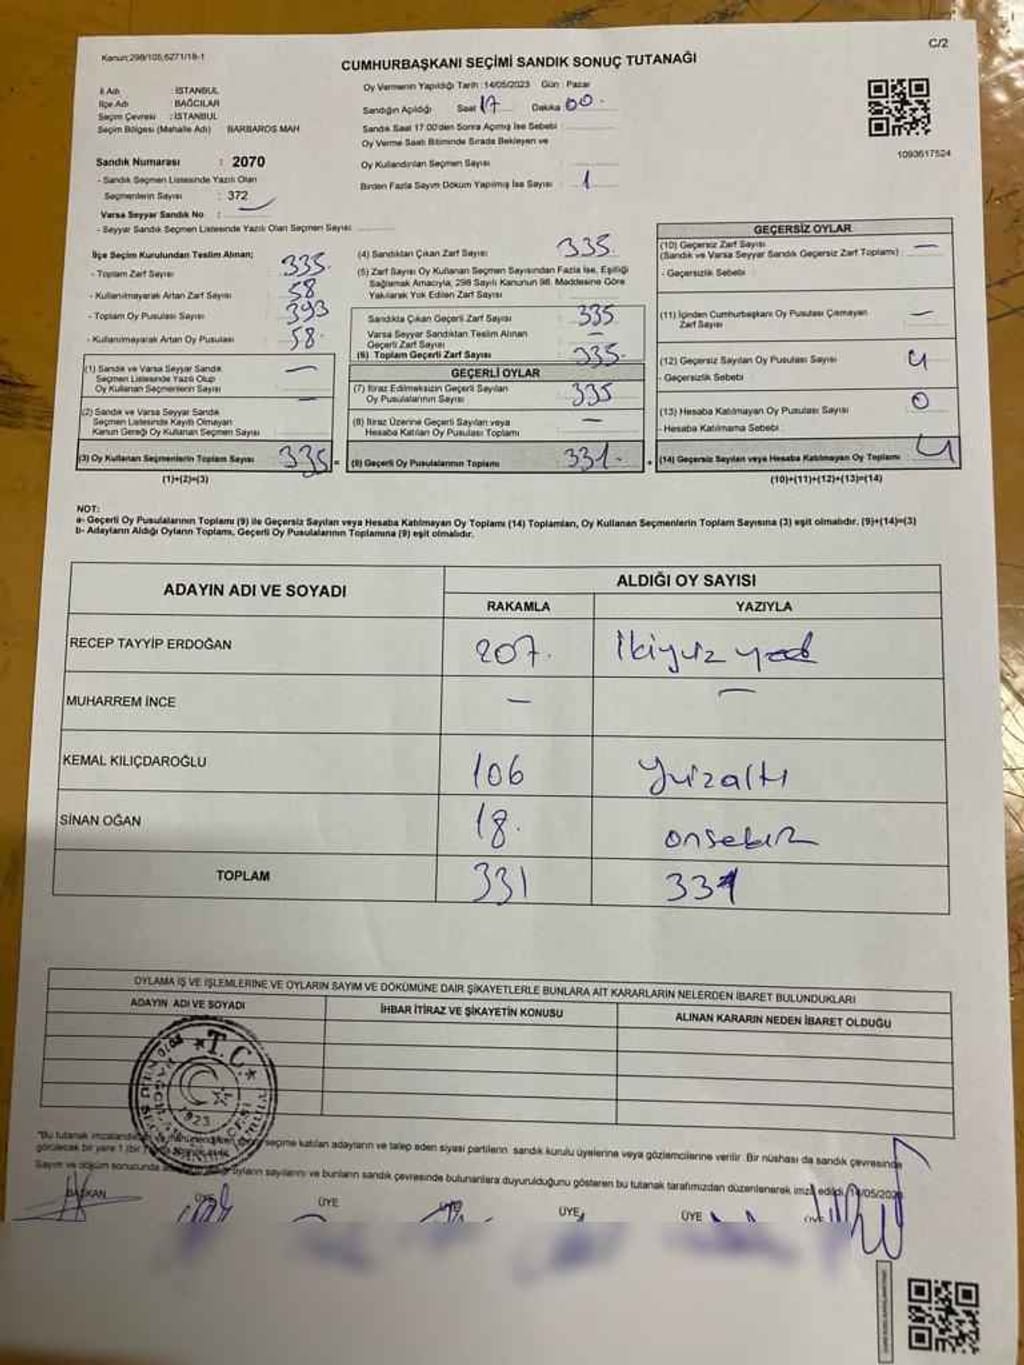 Kanun:298/105,6271/18-1
C/2
CUMHURBAŞKANI SEÇİMİ SANDIK SONUÇ TUTANAĞI
İl Adı : İSTANBUL
İlçe Adı : BAĞCILAR
Seçim Çevresi : İSTANBUL
Seçim Bölgesi (Mahalle Adı) BARBAROS MAH
Sandık Numarası : 2070
- Sandık Seçmen Listesinde Yazılı Olan
Seçmenlerin Sayısı : 372
Varsa Seyyar Sandık No :
- Seyyar Sandık Seçmen Listesinde Yazılı Olan Seçmen Sayısı
Oy Vermenin Yapıldığı Tarih :14/05/2023 Gün : Pazar
Sandığın Açıldığı Saat 17 Dakika 00.
Sandık Saat 17:00'den Sonra Açılmış İse Sebebi :
Oy Verme Saati Bitiminde Sırada Bekleyen ve
Oy Kullandırılan Seçmen Sayısı
Birden Fazla Sayım Döküm Yapılmış İse Sayısı 1
1093617524
İlçe Seçim Kurulundan Teslim Alınan;
- Toplam Zarf Sayısı 335.
- Kullanılmayarak Artan Zarf Sayısı 58
- Toplam Oy Pusulası Sayısı 393
- Kullanılmayarak Artan Oy Pusulası 58.
(1) Sandık ve Varsa Seyyar Sandık
Seçmen Listesinde Yazılı Olup
Oy Kullanan Seçmenlerin Sayısı —
(2) Sandık ve Varsa Seyyar Sandık
Seçmen Listesinde Kayıtlı Olmayan
Kanun Gereği Oy Kullanan Seçmen Sayısı —
(3) Oy Kullanan Seçmenlerin Toplam Sayısı 335 =
(1)+(2)=(3)
(4) Sandıktan Çıkan Zarf Sayısı 335.
(5) Zarf Sayısı Oy Kullanan Seçmen Sayısından Fazla İse, Eşitliği
Sağlamak Amacıyla, 298 Sayılı Kanunun 98. Maddesine Göre
Yakılarak Yok Edilen Zarf Sayısı
Sandıkta Çıkan Geçerli Zarf Sayısı 335
Varsa Seyyar Sandıktan Teslim Alınan
Geçerli Zarf Sayısı —
(6) Toplam Geçerli Zarf Sayısı 335.
GEÇERLİ OYLAR
(7) İtiraz Edilmeksizin Geçerli Sayılan
Oy Pusulalarının Sayısı 335
(8) İtiraz Üzerine Geçerli Sayılan veya
Hesaba Katılan Oy Pusulası Toplamı —
(9) Geçerli Oy Pusulalarının Toplamı 331. +
GEÇERSİZ OYLAR
(10) Geçersiz Zarf Sayısı
(Sandık ve Varsa Seyyar Sandık Geçersiz Zarf Toplamı) : —
- Geçersizlik Sebebi
(11) İçinden Cumhurbaşkanı Oy Pusulası Çıkmayan
Zarf Sayısı —
(12) Geçersiz Sayılan Oy Pusulası Sayısı 4
- Geçersizlik Sebebi
(13) Hesaba Katılmayan Oy Pusulası Sayısı 0
- Hesaba Katılmama Sebebi
(14) Geçersiz Sayılan veya Hesaba Katılmayan Oy Toplamı : 4
(10)+(11)+(12)+(13)=(14)
NOT:
a- Geçerli Oy Pusulalarının Toplamı (9) ile Geçersiz Sayılan veya Hesaba Katılmayan Oy Toplamı (14) Toplamları, Oy Kullanan Seçmenlerin Toplam Sayısına (3) eşit olmalıdır. (9)+(14)=(3)
b- Adayların Aldığı Oyların Toplamı, Geçerli Oy Pusulalarının Toplamına (9) eşit olmalıdır.
ADAYIN ADI VE SOYADI ALDIĞI OY SAYISI
RAKAMLA YAZIYLA
RECEP TAYYİP ERDOĞAN 207. İkiyüz yedi
MUHARREM İNCE — —
KEMAL KILIÇDAROĞLU 106 Yüzaltı
SİNAN OĞAN 18. onsekiz
TOPLAM 331 331
OYLAMA İŞ VE İŞLEMLERİNE VE OYLARIN SAYIM VE DÖKÜMÜNE DAİR ŞİKAYETLERLE BUNLARA AİT KARARLARIN NELERDEN İBARET BULUNDUKLARI
ADAYIN ADI VE SOYADI İHBAR İTİRAZ VE ŞİKAYETİN KONUSU ALINAN KARARIN NEDEN İBARET OLDUĞU
T.C.
1923
"Bu tutanak seçime katılan adayların ve talep eden siyasi partilerin sandık kurulu üyelerine veya gözlemcilerine verilir. Bir nüshası da sandık çevresinde
görülecek bir yere
Sayım ve döküm sonucunda oyların sayılarını ve bunların sandık çevresinde bulunanlara duyurulduğunu gösteren bu tutanak tarafımızdan düzenlenerek imza edildi.
BAŞKAN ÜYE ÜYE ÜYE ÜYE ÜYE ÜYE